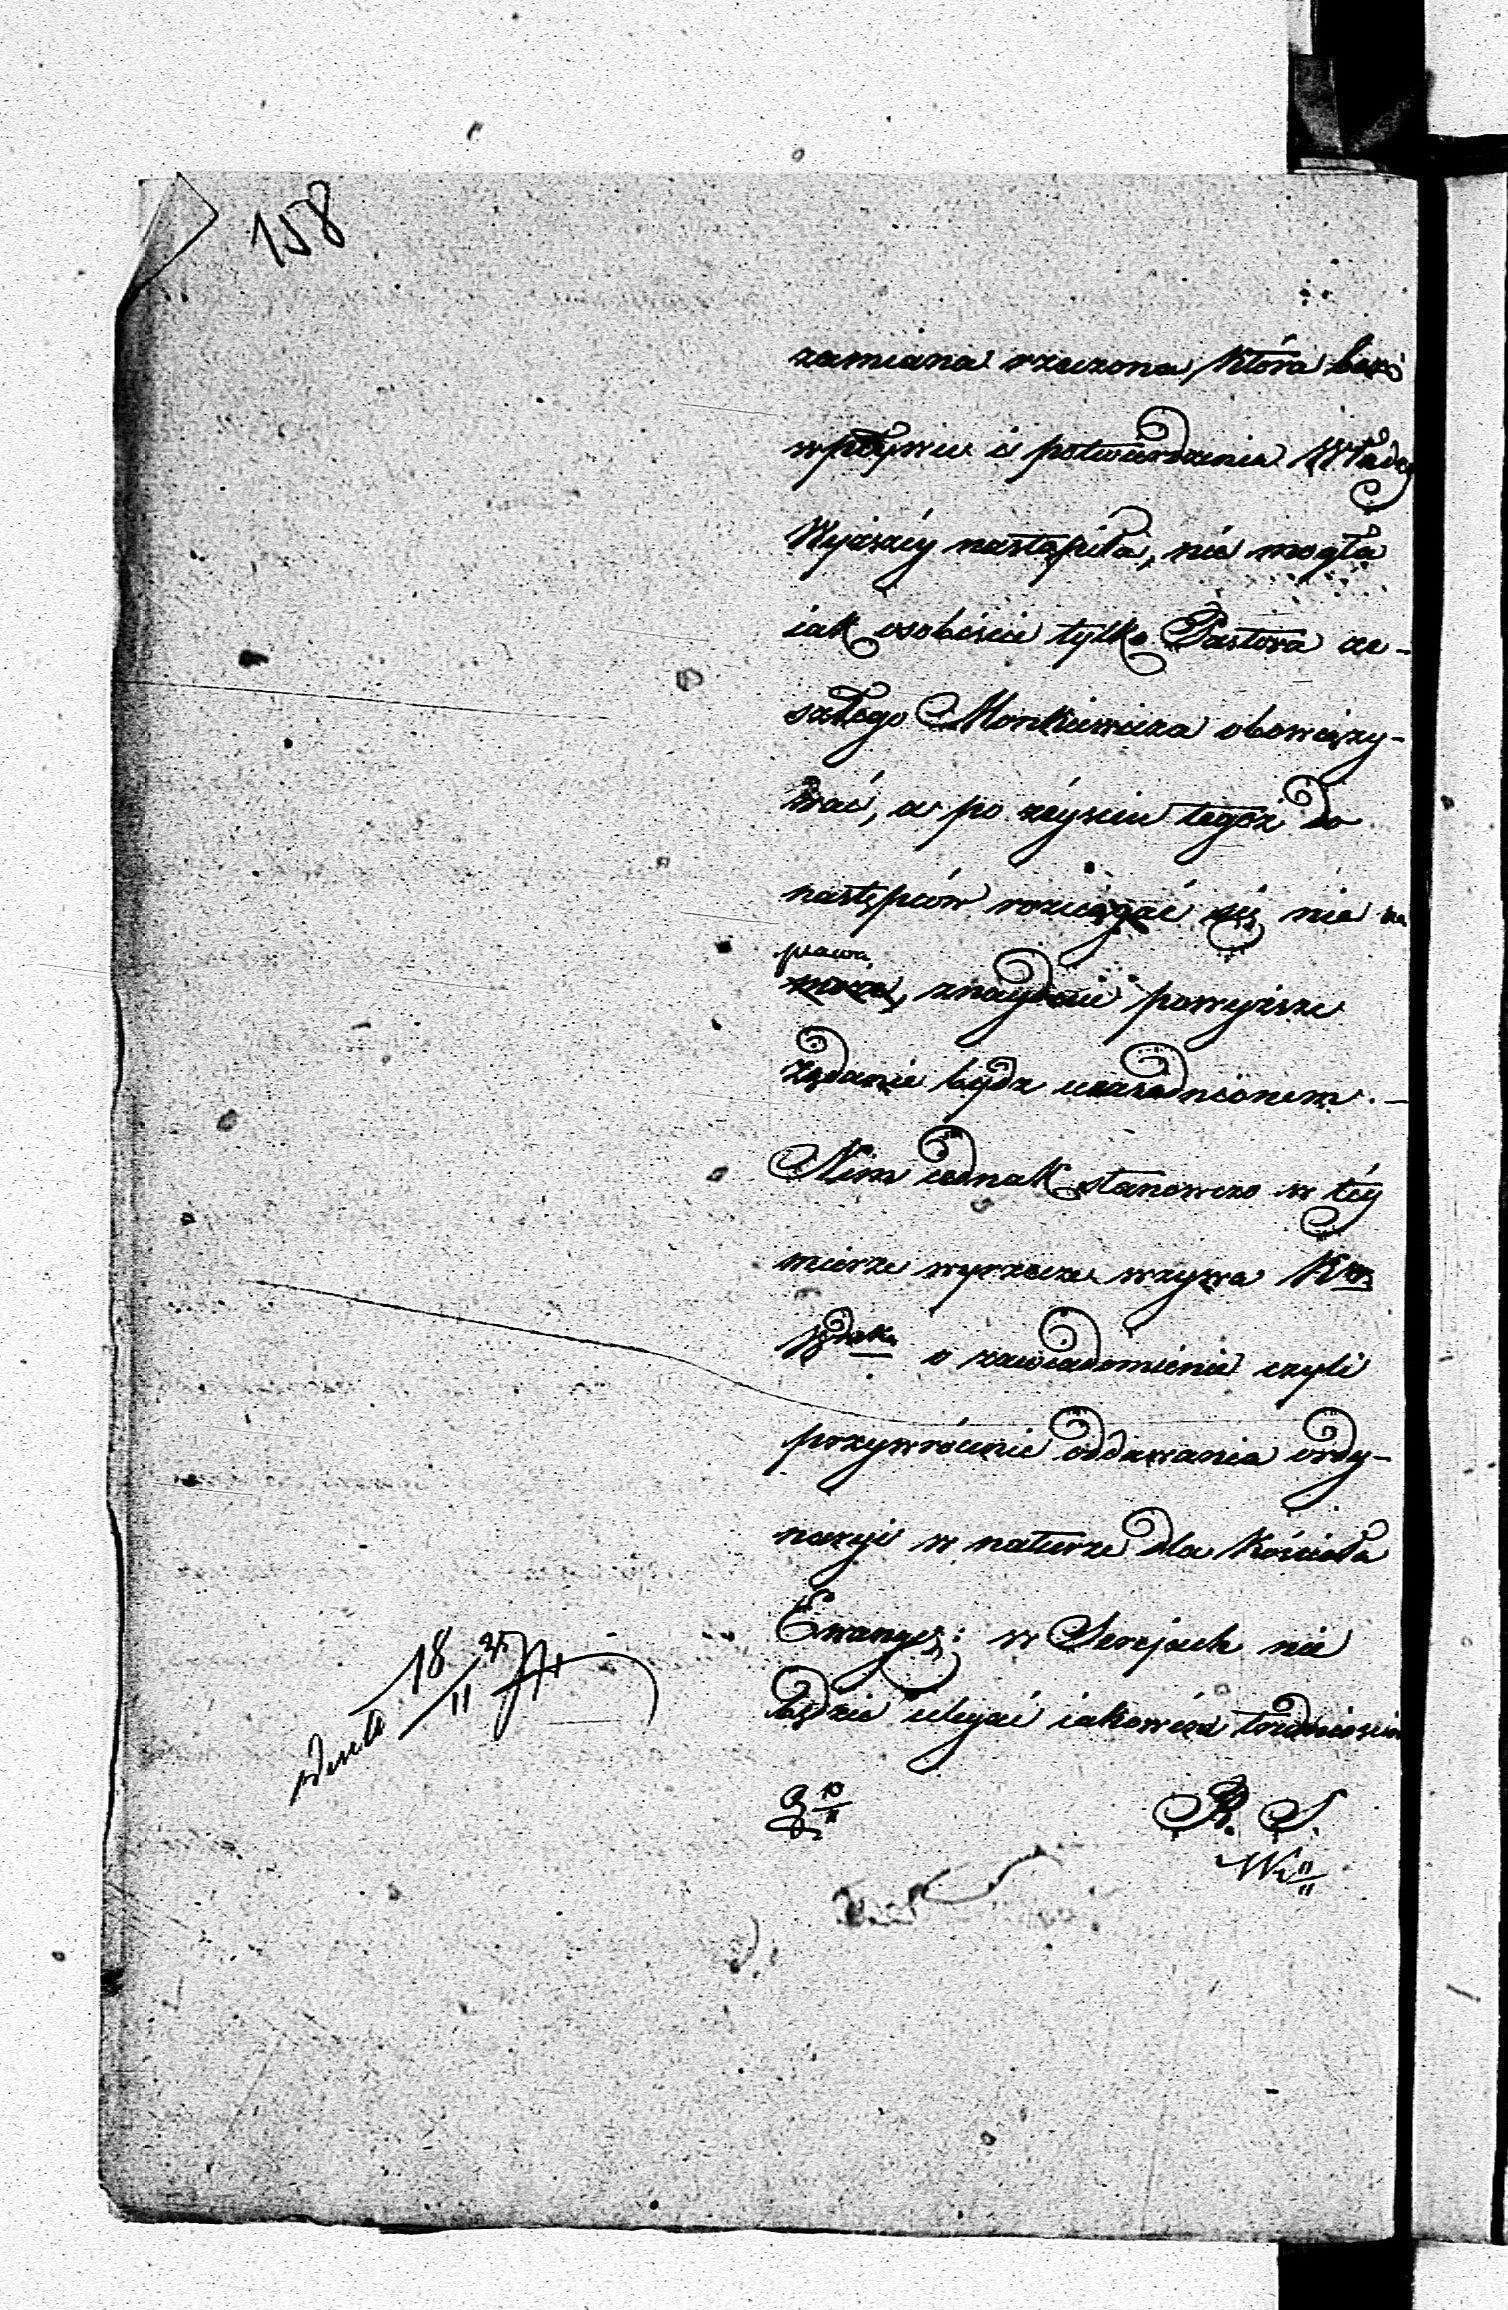 158
zamiana rzeczona, która bez
wpływu i potwierdzenia Władzy
Wyższéy nastąpiła, nie mogła
iak osobiście tylko Pastora ze-
szłego Monkiewicza obowiązy-
wać, a po zéyściu tegoż do
następców rozciągać się nie ma
prawa,
może, znayduie powyższe
Żądanie bydz uzasadnionem. —
Nim iednak stanowczo w téy
mierze wyrzecze wzywa Kom
o zawiadomienie czyli
przywrócenie oddawania ordy-
naryi w naturze dla Kościoła
Ewangel: w Serejach nie
będzie ulegać iakowéy trudności
18/11 25
10/11 R. S.
W 11/11